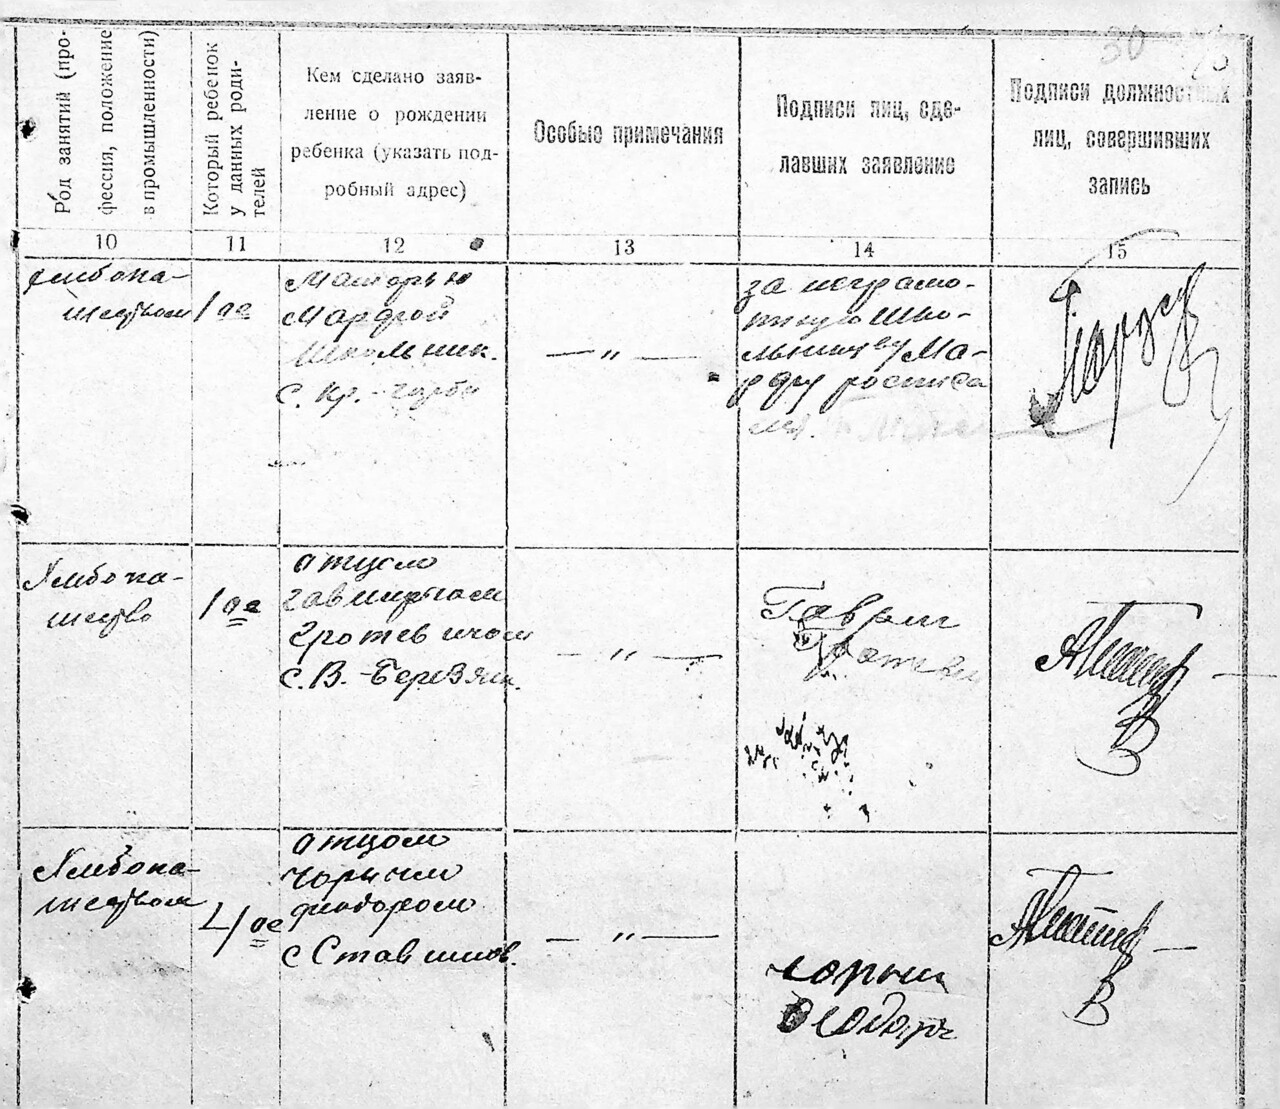 30
Род занятий (про-
фессия, положение
в промышленности)
Который ребенок
у данных роди-
телей
Кем сделано заяв-
ление о рождении
ребенка (указать под-
робный адрес)
Особые примечания
Подписи лиц, сде-
лавших заявление
Подписи должностных
лиц, совершивших
запись
10
11
12
13
14
15
хлебопа-
шеством
1ое
Матерью
Марфой
Школьник.
с. Кр.-
— " —
за неграмо-
тную Шко-
льникову Ма-
рфу росписа
Хлебопа-
шество
1ое
отцом
Гавриилом
с. В.-Березян.
— " —
Гаврил
Хлебопа-
шеством
4ое
отцом
Чорним
Фиодором
с Ставищов.
— " —
Чорний
Фиодорг